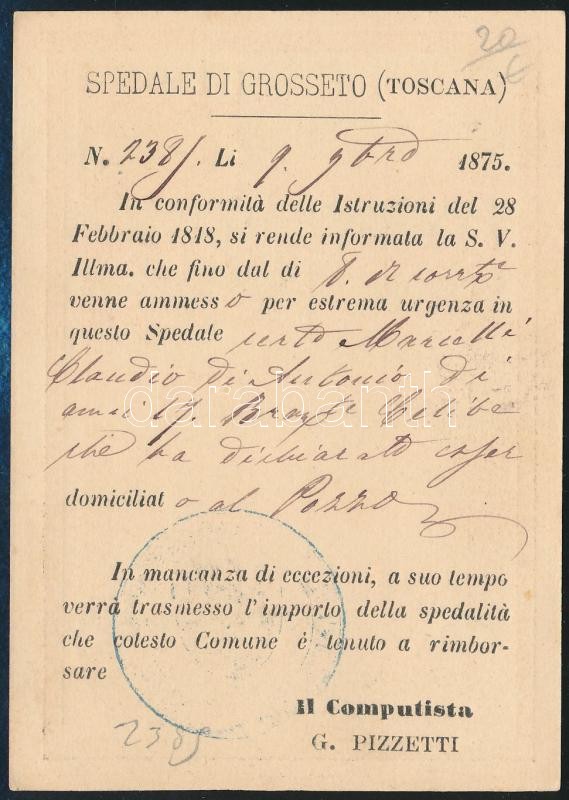 20
€
SPEDALE DI GROSSETO (TOSCANA)
N. 2385. Li 9. 9brd 1875.
In conformità delle Istruzioni del 28
Febbraio 1818, si rende informata la S. V.
Illma. che fino dal di 8. di corrte
venne ammesso per estrema urgenza in
questo Spedale certo Marcelli
Claudio di Antonio di
anni Bracte Celibe
che ha dichiarato esser
domiciliato al Pozzo
In mancanza di eccezioni, a suo tempo
verrà trasmesso l'importo della spedalità
che cotesto Comune è tenuto a rimbor-
sare
Il Computista
G. PIZZETTI
2385
darabanth